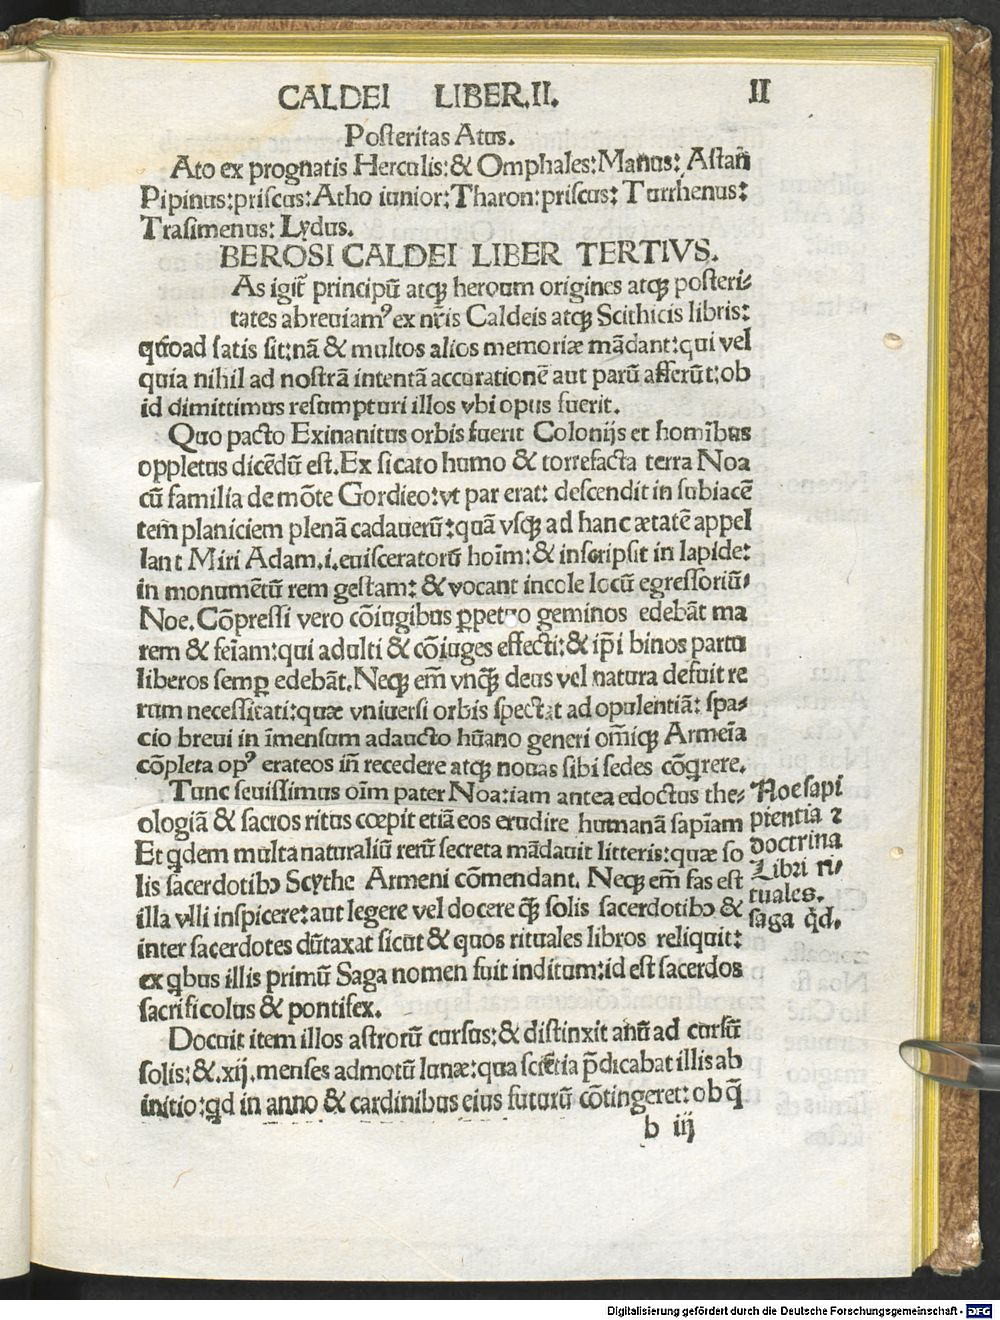 CALDEI LIBER.II. II
Posteritas Atus.
Ato ex prognatis Herculis:& Omphales:Manus: Astañ
Pipinus:priscus:Atho iunior:Tharon:priscus: Turrhenus:
Trasimenus: Lydus.
BEROSI CALDEI LIBER TERTIVS.
As igit̃ principũ atqꝫ heroum origines atqꝫ posteri-
tates abreuiamꝰ ex nr̃is Caldeis atqꝫ Scithicis libris:
quoad satis sit:nã & multos alios memoriæ mãdant:qui vel
quia nihil ad nostrã intentã accurationẽ aut parũ afferũt:ob
id dimittimus resumpturi illos vbi opus fuerit.
Quo pacto Exinanitus orbis fuerit Colonijs et homĩbus
oppletus dicẽdũ est.Ex sicato humo & torrefacta terra Noa
cũ familia de mõte Gordieo:vt par erat: descendit in subiacẽ
tem̃ planiciem plenã cadauerũ:quã vsqꝫ ad hanc ætatẽ appel
lant Miri Adam.i.euisceratorũ hoĩm:& inscripsit in lapide:
in monumẽtũ rem gestam: & vocant incole locũ egressoriũ-
Noe.Cõpressi vero cõiugibus ꝑpetuo geminos edebãt ma
rem & feĩam:qui adulti & cõiuges effecti:& ip̃i binos partu
liberos semꝑ edebãt.Neqꝫ em̃ vnqꝫ̃ deus vel natura defuit re
rum necessitati:quæ vniuersi orbis spectat ad opulentiã: spa-
cio breui in ĩmensum adaucto hũano generi om̃iqꝫ Armeĩa
cõpleta opꝰ erateos iñ recedere atqꝫ nouas sibi sedes cõqrere.
Tunc seuissimus oĩm pater Noa:iam antea edoctus the-
ologiã & sacros ritus cœpit etiã eos erudire humanã sapĩam
Et qdem multa naturaliũ rerũ secreta mãdauit litteris:quæ so
lis sacerdotibꝰ Scythe Armeni cõmendant. Neqꝫ em̃ fas est
illa vlli inspicere:aut legere vel docere qꝫ̃ solis sacerdotibꝰ &
inter sacerdotes dũtaxat sicut & quos rituales libros reliquit:
ex qbus illis primũ Saga nomen fuit inditum:id est sacerdos
sacrificolus & pontifex.
Docuit item illos astrorũ cursus:& distinxit anũ ad cursũ
solis:&.xij.menses admotũ lunæ:qua sciẽtia p̃dicabat illis ab
initio:qd in anno & cardinibus eius futurũ cõtingeret: ob q̃
b iij
Noe sapi
pientia ⁊
doctrina
Libri ri-
tuales.
saga q̇d.
Digitalisierung gefördert durch die Deutsche Forschungsgemeinschaft - DFG